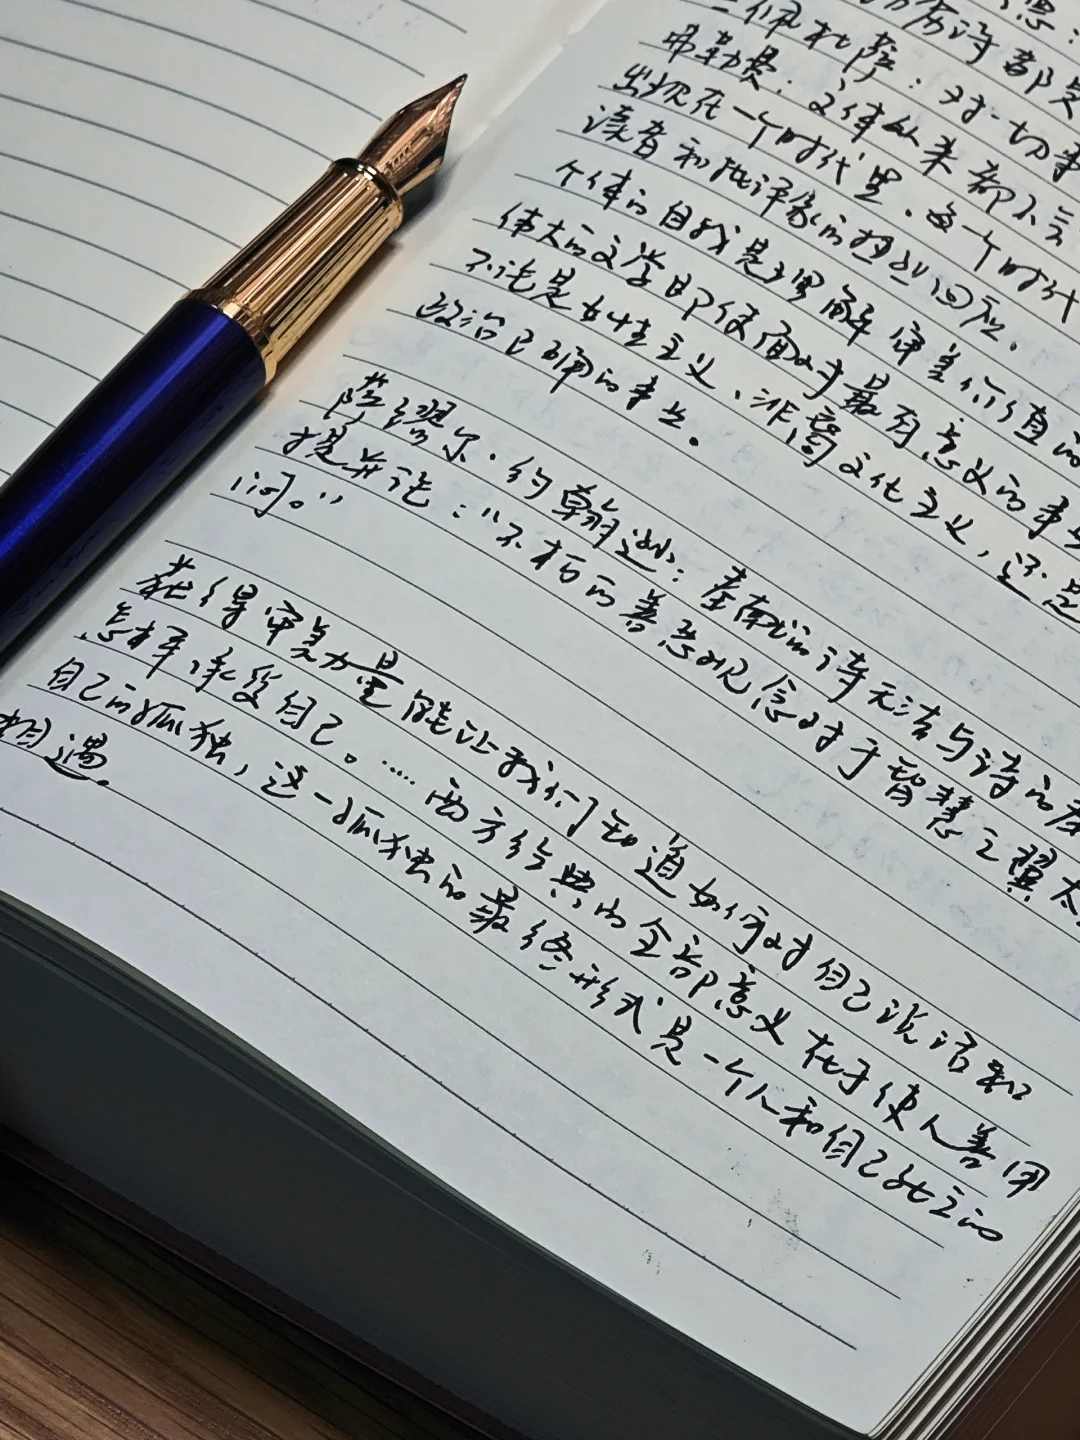 思：
诗部
佩杜萨：对一切事
文体从来都不会
出现在一个时代里。每一个时代
读者和批评家的 回应。
个体的自我是理解审美价值的
伟大的文学即使面对最有意义的事业
不论是女性主义、非裔文化主义，还是
政治正确的事业。
萨缪尔·约翰逊：虔敬的诗无法与诗的虔
提并论：“不朽的善恶观念对于智慧之翼太
问。”
获得审美力量能让我们知道如何对自己说话和
怎样承受自己。……西方经典的全部意义在于使人善用
自己的孤独，这一孤独的最终形式是一个人和自己死亡的
相遇。